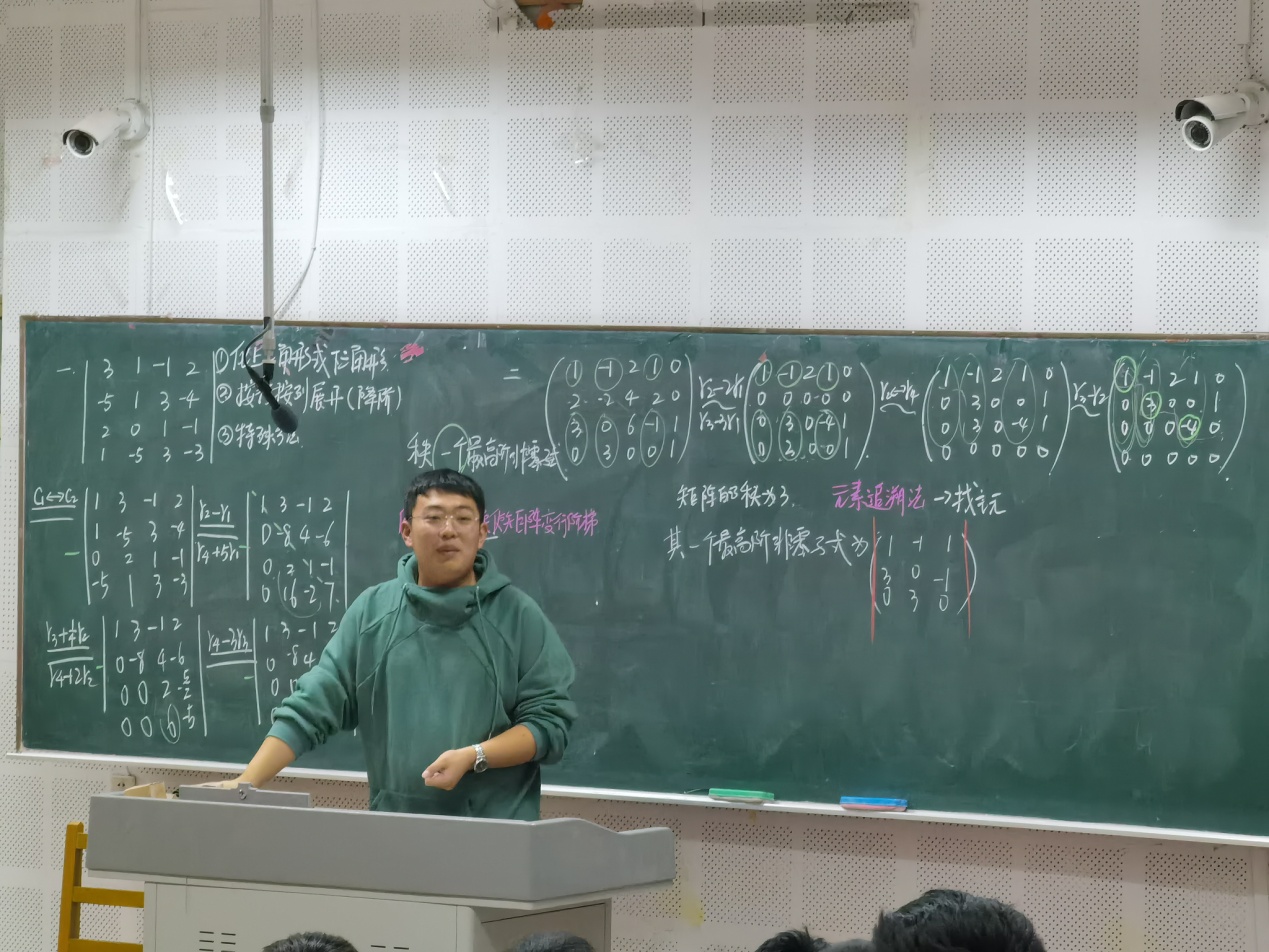 一. 3 1 -1 2
-5 1 3 -4
2 0 1 -1
1 -5 3 -3
① 化上三角形或下三角形
② 按行按列展开(降阶)
③ 特殊方法
C1↔C2
1 3 -1 2
1 -5 3 -4
0 2 1 -1
-5 1 3 -3
r2-r1
r4+5r1
1 3 -1 2
0 -8 4 -6
0 2 1 -1
0 16 -2 7
r4+2r2
1 3 -1 2
0 -8 4 -6
0 0 2 -5/2
0 0 6 -5
r4-3r3
1 3 -1 2
0 -8 4
0 0
秩 一个最高阶非零子式
矩阵变行阶梯
二
1 -1 2 1 0
2 -2 4 2 0
3 0 6 -1 1
0 3 0 0 1
r2-2r1
r3-3r1
1 -1 2 1 0
0 0 0 0 0
0 3 0 -4 1
0 3 0 0 1
r2↔r4
1 -1 2 1 0
0 3 0 0 1
0 3 0 -4 1
0 0 0 0 0
r3-r2
1 -1 2 1 0
0 3 0 0 1
0 0 0 -4 0
0 0 0 0 0
矩阵的秩为3. 元素追溯法→找主元
其一个最高阶非零子式为
1 -1 1
3 0 -1
0 3 0